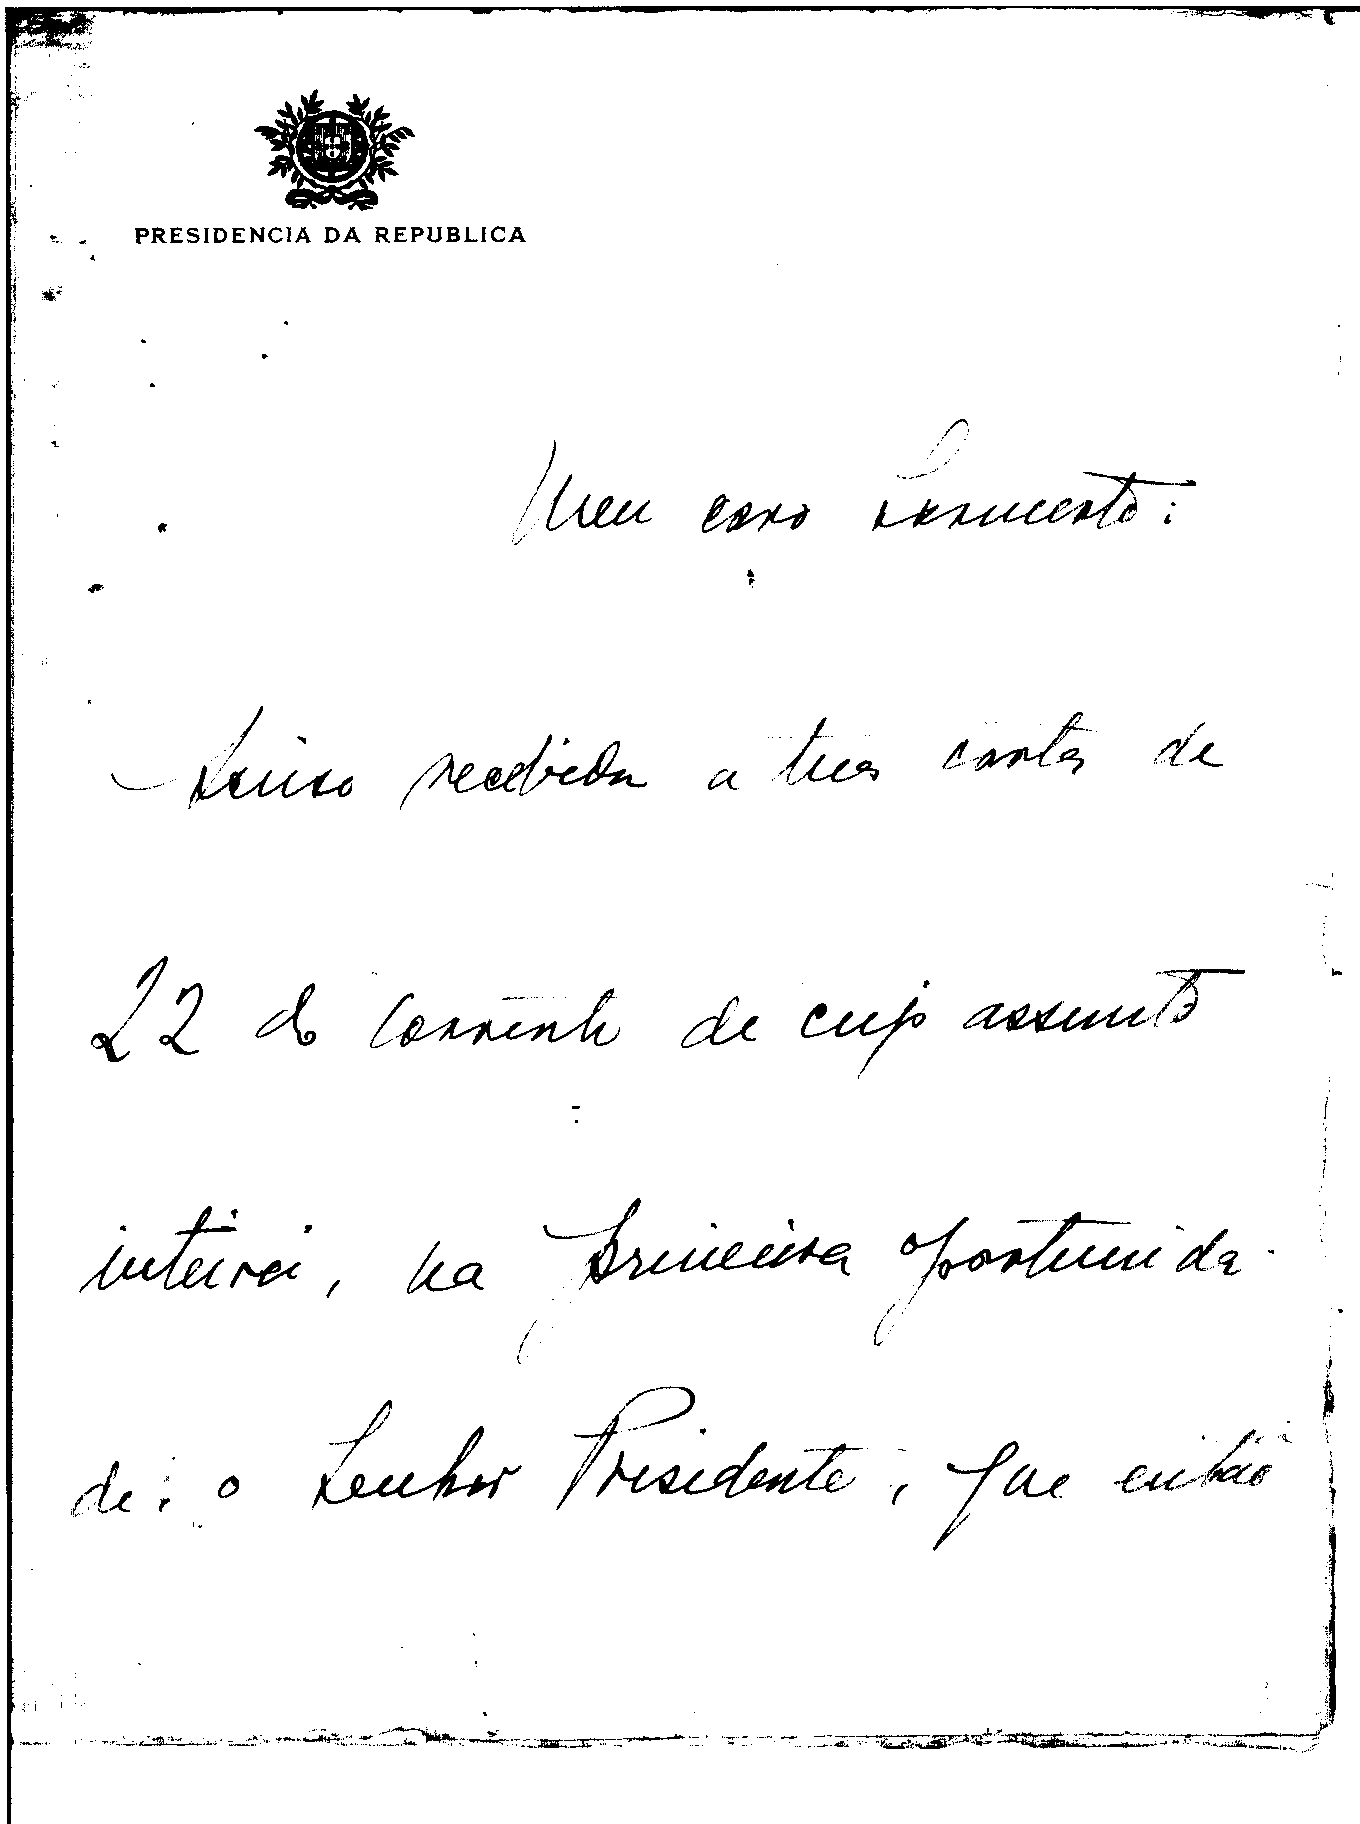 PRESIDENCIA DA REPUBLICA
Meu caro Sarmento:
Acuso recebida a tua carta de
22 do corrente de cujo assunto
inteirei, na primeira oportunida-
de, o Senhor Presidente, que então